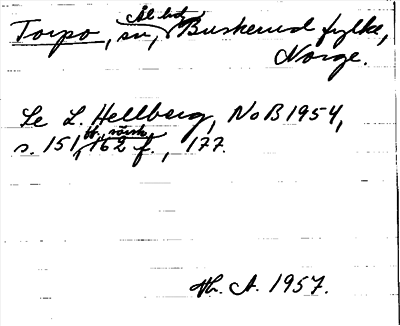 Torpo, sn, Ål hd, Buskerud fylke,
Norge.
Se L. Hellberg, NoB 1954,
s. 151, 162 f., 177.
Vh. A. 1957.